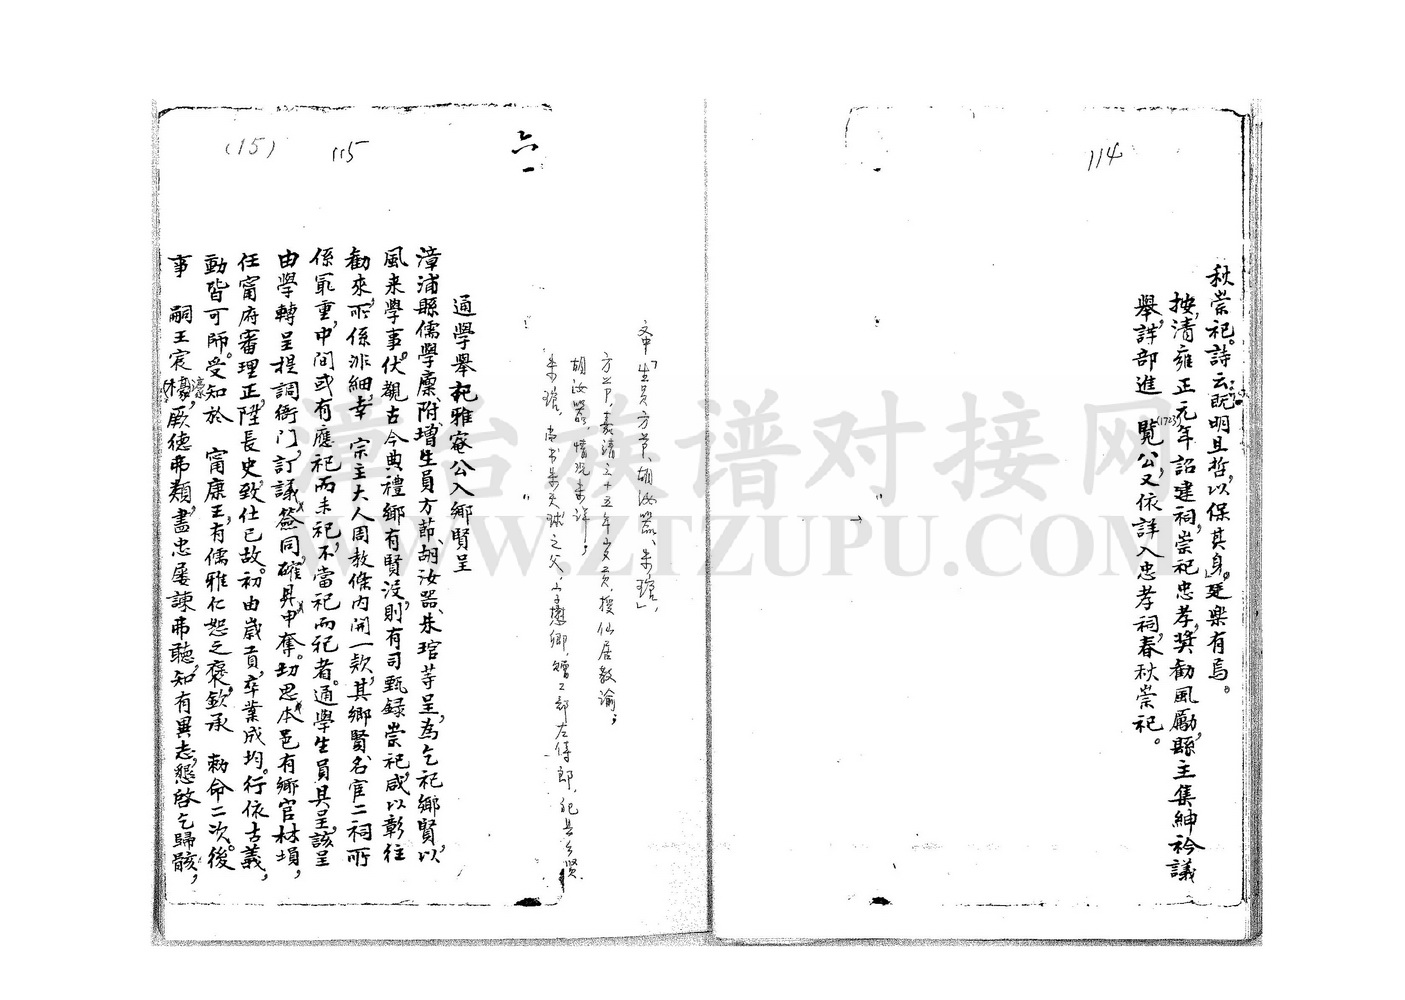 114
秋崇祀。詩云：「既明且哲，以保其身。」廷樂有焉。
按，清雍正元年詔建祠，崇祀忠孝，獎勸風勵，縣主集紳衿議
(1723)
舉，詳部進　覽公，又依詳入忠孝祠，春秋崇祀。
文中「生員方节、胡汝器、朱琯」
方节，嘉靖三十五年歲貢，授仙居教諭；
胡汝器，情况未详；
朱琯，尚书朱天球之父，字懋卿，贈工部左侍郎，祀县乡贤
六
115
(15)
通學舉祀雅菴公入鄉賢呈
漳浦縣儒學廩、附、增生員方節、胡汝器、朱琯等呈，為乞祀鄉賢，以
風来學事。伏觀古今典禮，鄉有賢没，則有司甄録崇祀，咸以彰往
勸來，所係非細，幸　宗主大人周教條内開一款，其鄉賢、名宦二祠所
係最重，中間或有應祀而未祀，不當祀而祀者。通學生員具呈，該呈
由學轉呈提調衙門，訂議簽同，確昇申奪。切思本邑有鄉官林塤，
任甯府審理正，陞長史，致仕已故。初由歲貢，卒業成均。行依古義，
動皆可師。受知於　甯康王，有儒雅仁恕之褒，欽承　勅命二次。後
事　嗣王宸濠，厥德弗類，盡忠屢諫弗聽，知有異志，懇啓乞歸骸，
漳台族谱对接网
WWW.ZTZUPU.COM